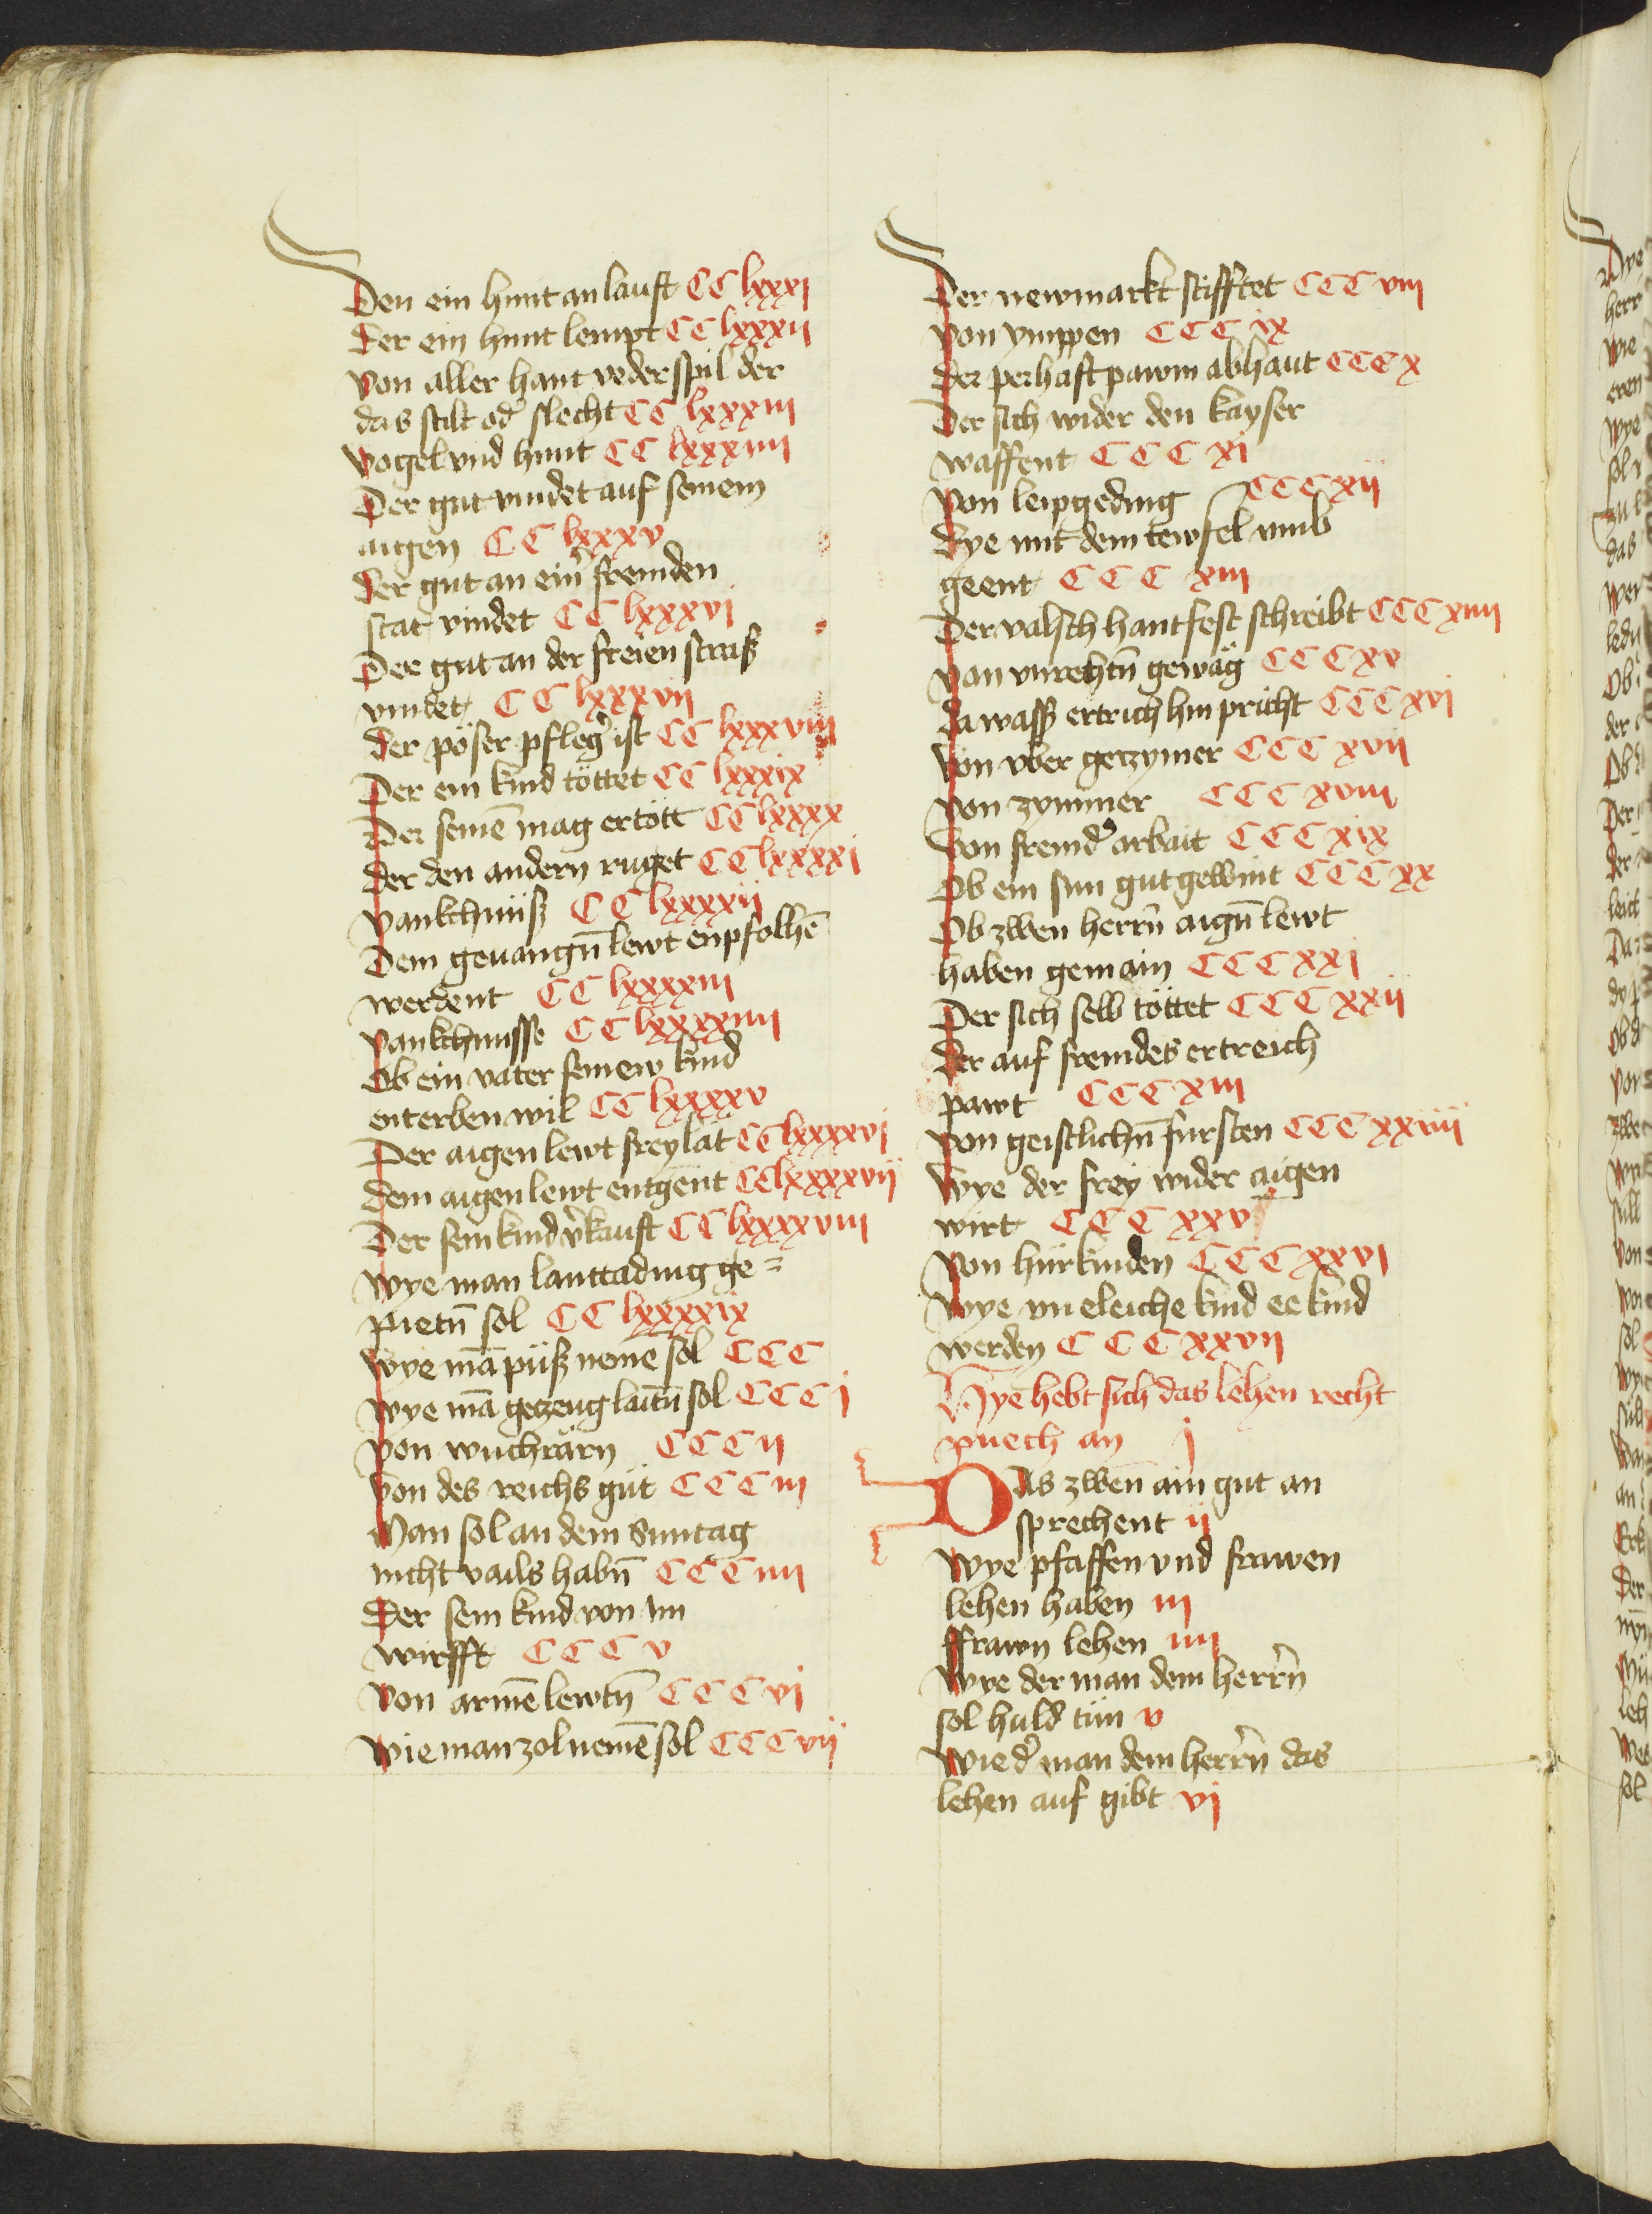 Den ein hunt an lauft CC lxxxj
Der ein hunt lempt CC lxxxij
Von aller hant vederspil der
das stilt od slecht CC lxxxiii
Vogel vnd hunt CC lxxxiiii
Der gut vindet auf seinem
aigen CC lxxxv
Der gut an ein fremden
stat vindet CC lxxxvj
Der gut an der freien straß
vindet CC lxxxvij
Der pöser pfleg ist CC lxxxviij
Der ein kind töttet CC lxxxix
Der seinē mag ertött CC lxxxx
Der den andern ruget CC lxxxxj
Vankchnüß CC lxxxxij
Dem geuangn̄ lewt enpfolhē
werdent CC lxxxxiij
Vankchnusse CC lxxxxiiij
Ob ein vater seinew kind
enterben wil CC lxxxxv
Der aigen lewt frey lät CC lxxxxvj
Dem aigen lewt entgent CC lxxxxvij
Der sein kind v̾kauft CC lxxxxviij
Wye man lanttading ge=
pietn̄ sol CC lxxxxix
Wye mā püß nemē sol CCC
Wye mā getzeug laitn̄ sol CCC j
Von wuchrärn CCC ij
Von des reichs güt CCC iij
Man sol an dem Suntag
nicht vails habn̄ CCC iiij
Der sein kind von im
wirfft CCC v
Von armē lewtn̄ CCC vj
Wie man zol nemē sol CCC vij
Der newmarkt stifftet CCC viij
Von ymppen CCC ix
Der perhaft pawm abhaut CCC x
Der sich wider den kayser
waffent CCC xj
Von leipgeding CCC xij
Dye mit dem tewfel vmb
geent CCC xiij
Der valsch hantfest schreibt CCC xiiij
Van vnrechtn̄ gewäg CCC xv
Da wass ertrich hin pricht CCC xvj
Von vber getzymer CCC xvij
Von zymmer CCC xviij
Von fremd̾ arbait CCC xix
Ob ein sun gut gewint CCC xx
Ob zwen herrn̄ aign̄ lewt
haben gemain CCC xxj
Der sich selb töttet CCC xxij
Der auf fremdes ertreich
pawt CCC xiij
Von geistlichn̄ fürsten CCC xxiiij
Wye der frey wider aigen
wirt CCC xxv
Von hürkinden CCC xxvj
Wye vneleiche kind ee kind
werden CCC xxvij
Hye hebt sich das lehen recht
puech an j
Das zwen ain gut an
sprechent ij
Wye pfaffen vnd frawen
lehen haben iij
ffrawn lehen iiij
Wye der man dem herrn̄
sol huld tün v
Wie d̾ man dem herrn̄ das
lehen auf gibt vj